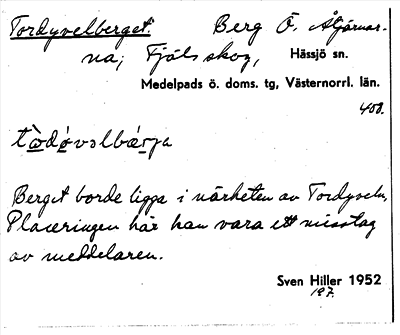 Tordyvelberget. Berg Ö. Åtjärnar-
na, Fjäls skog, Hässjö sn.
Medelpads ö. doms. tg, Västernorrl. län.
400.
Berget borde ligga i närheten av Tordyveln,
Placeringen här kan vara ett misstag
av meddelaren.
Sven Hiller 1952
197.